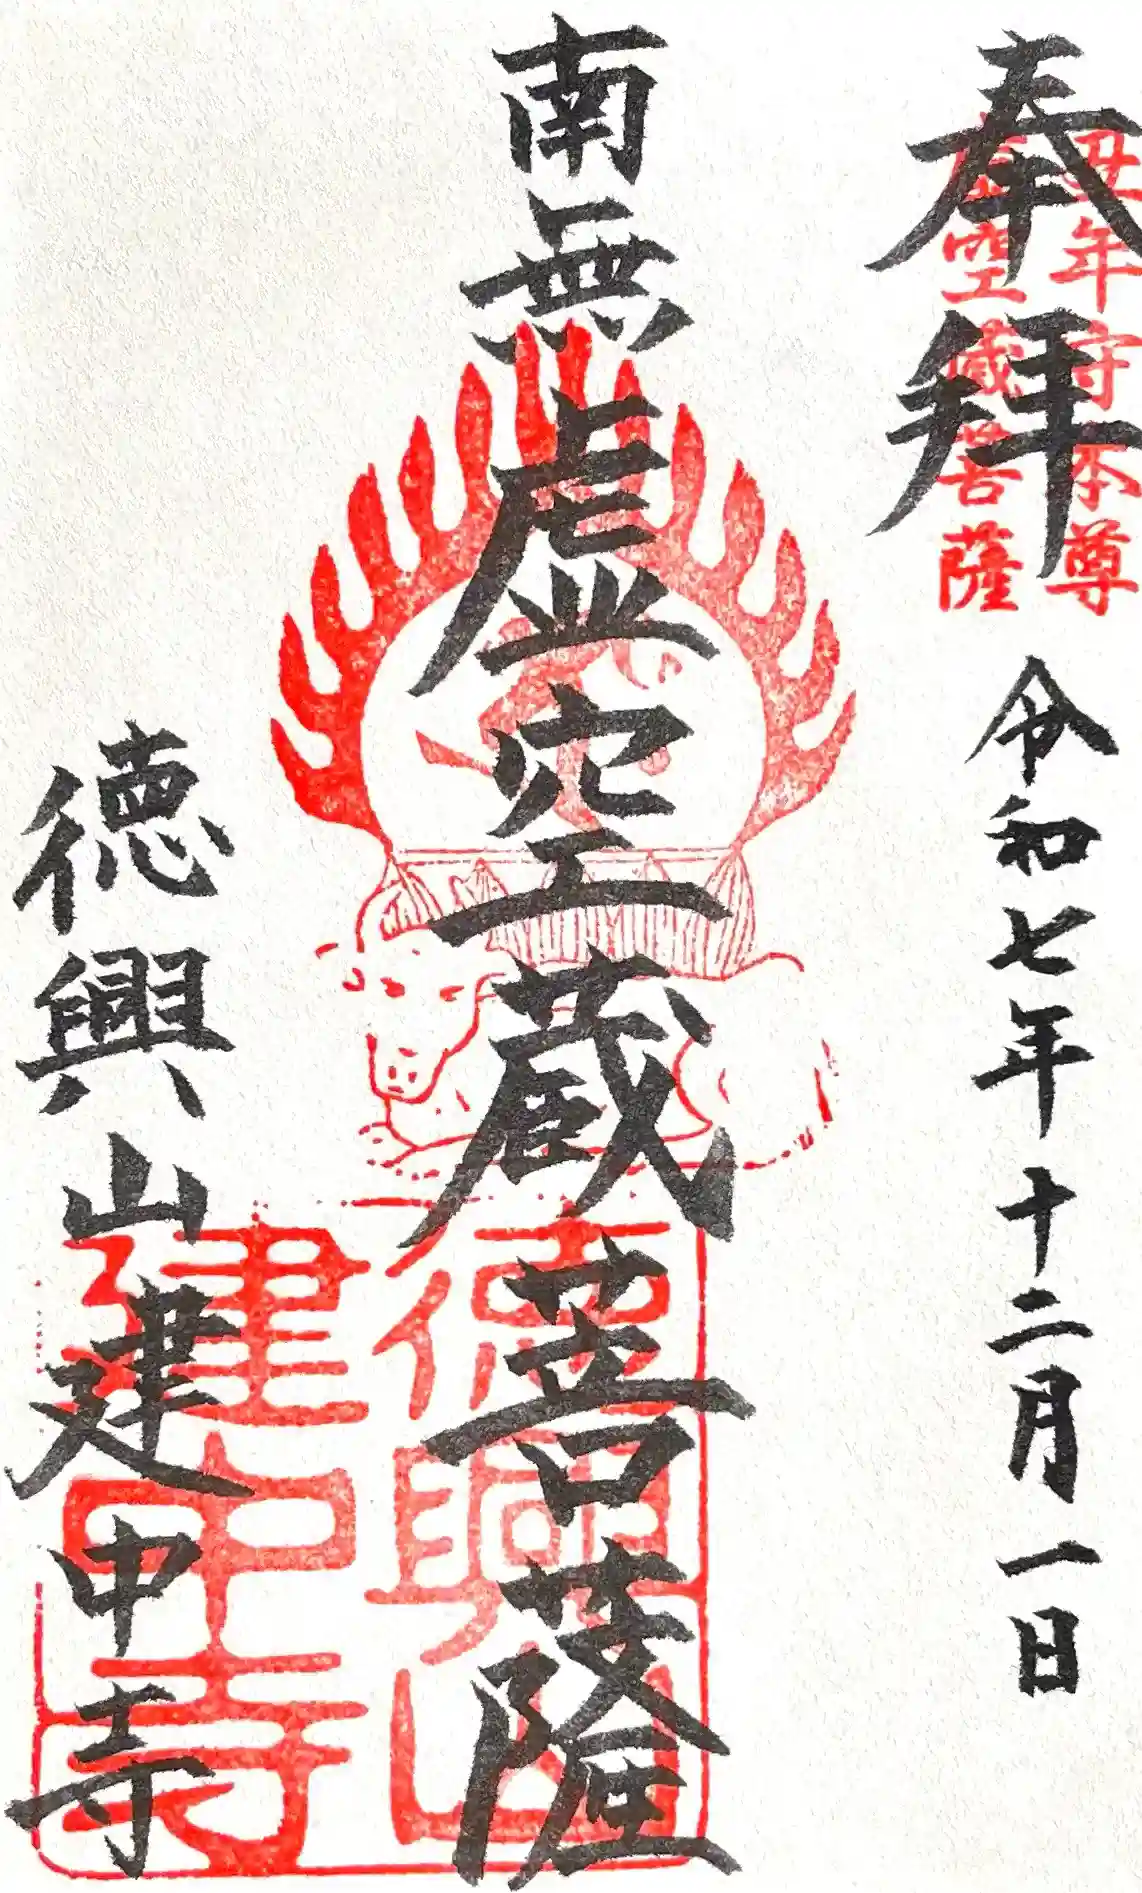 奉拝 令和七年十二月一日
丑年守本尊
虚空蔵菩薩
南無虚空蔵菩薩
徳興山建中寺
徳興山
建中寺